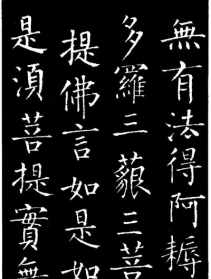 無有法得阿耨
多羅三藐三菩
提佛言如是如
是須菩提實無